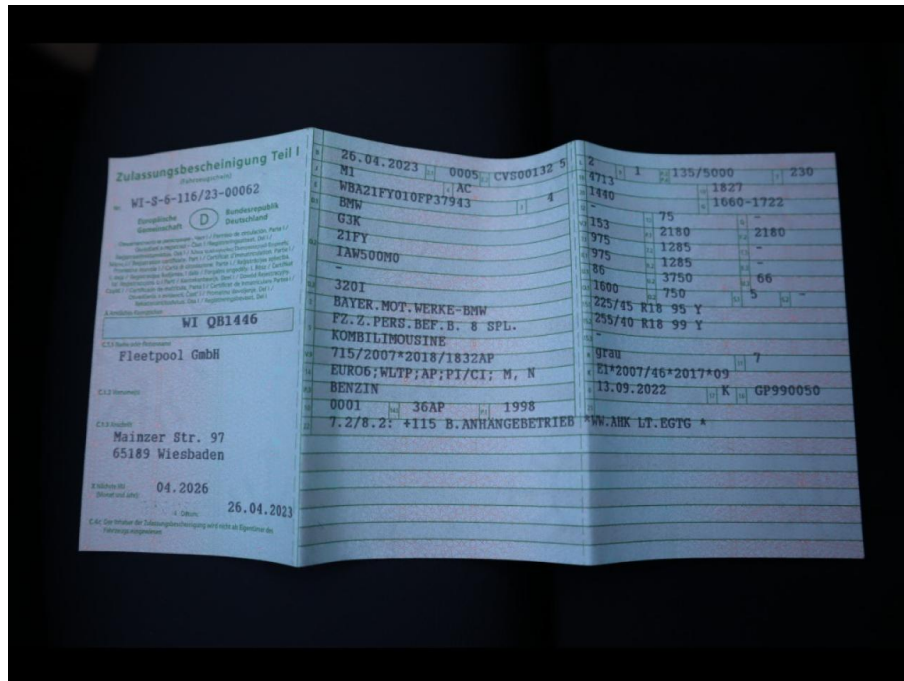 Zulassungsbescheinigung Teil I
(Fahrzeugschein)
Nr. WI-S-6-116/23-00062
Europäische Gemeinschaft
D
Bundesrepublik Deutschland
WI QB1446
Fleetpool GmbH
Mainzer Str. 97
65189 Wiesbaden
04.2026
26.04.2023
26.04.2023 0005 CVS00132 5
M1 AC
WBA21FY010FP37943 4
BMW
G3K
21FY
IAW500M0
-
320I
BAYER.MOT.WERKE-BMW
FZ.Z.PERS.BEF.B. 8 SPL.
KOMBILIMOUSINE
715/2007*2018/1832AP
EURO6;WLTP;AP;PI/CI; M, N
BENZIN
0001 36AP 1998
7.2/8.2: +115 B.ANHÄNGEBETRIEB *WW.AHK LT.EGTG *
2 1 135/5000 230
4713 1827
1440 1660-1722
- 75 -
153 2180 2180
975 1285 -
975 1285 -
86 3750 66
1600 750 5 -
225/45 R18 95 Y
255/40 R18 99 Y
-
grau 7
E1*2007/46*2017*09
13.09.2022 K GP990050